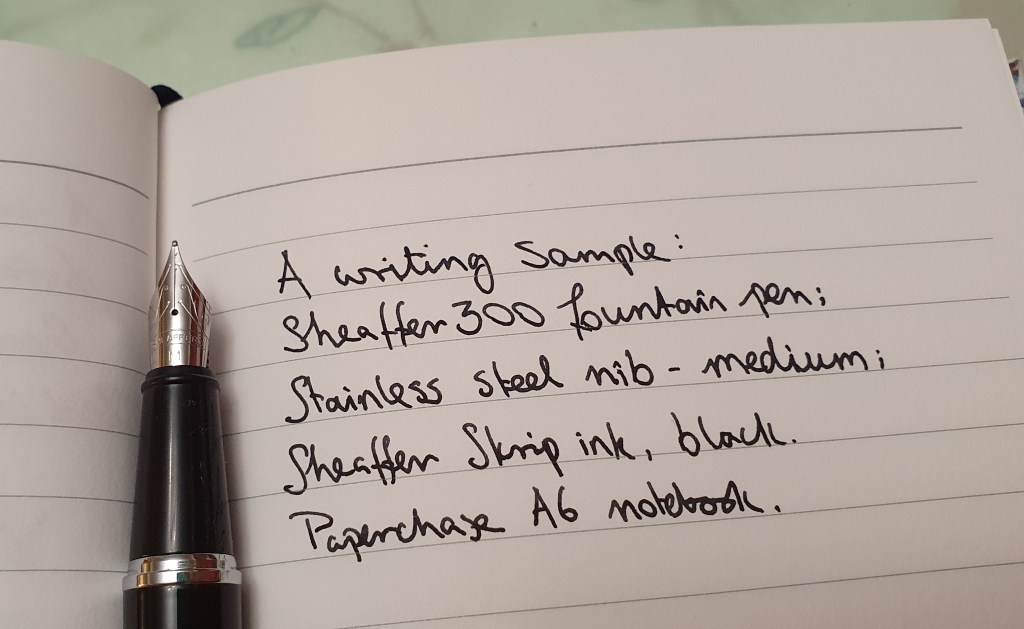 A writing sample:
Sheaffer 300 fountain pen;
Stainless steel nib - medium;
Sheaffer Skrip ink, black.
Paperchase A6 notebook.